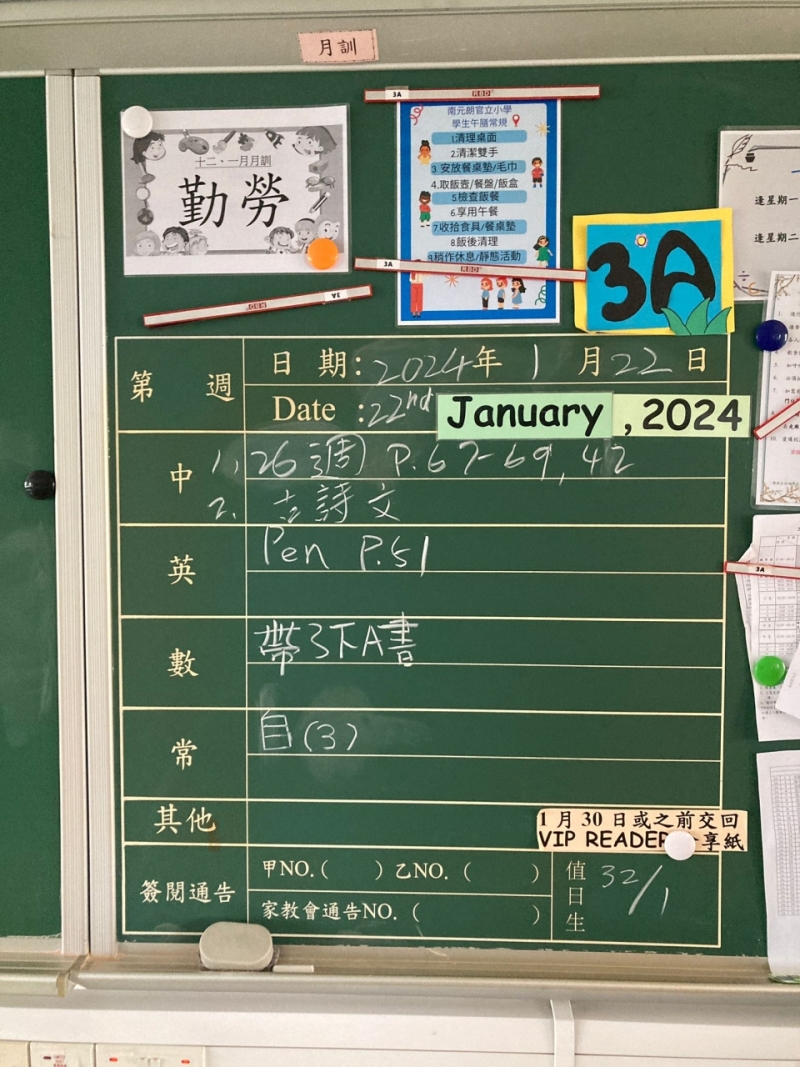 月訓
十二、一月月訓
勤勞
3A
南元朗官立小學
學生午膳常規
1清理桌面
2清潔雙手
3.安放餐桌墊/毛巾
4.取飯壺/餐盤/飯盒
5檢查飯餐
6.享用午餐
7收拾食具/餐桌墊
8飯後清理
9稍作休息/靜態活動
3A
3A
3A
逢星期一
逢星期二
第 週
日 期: 2024年 1 月 22 日
Date : 22nd January , 2024
中
1. 26週 P.67-69, 42
2. 古詩文
英
Pen P.51
數
帶3下A書
常
自(3)
其他
1 月 30 日或之前交回
VIP READER 享紙
簽閱通告
甲NO.( ) 乙NO.( )
家教會通告NO.( )
值日生
32/1
3A